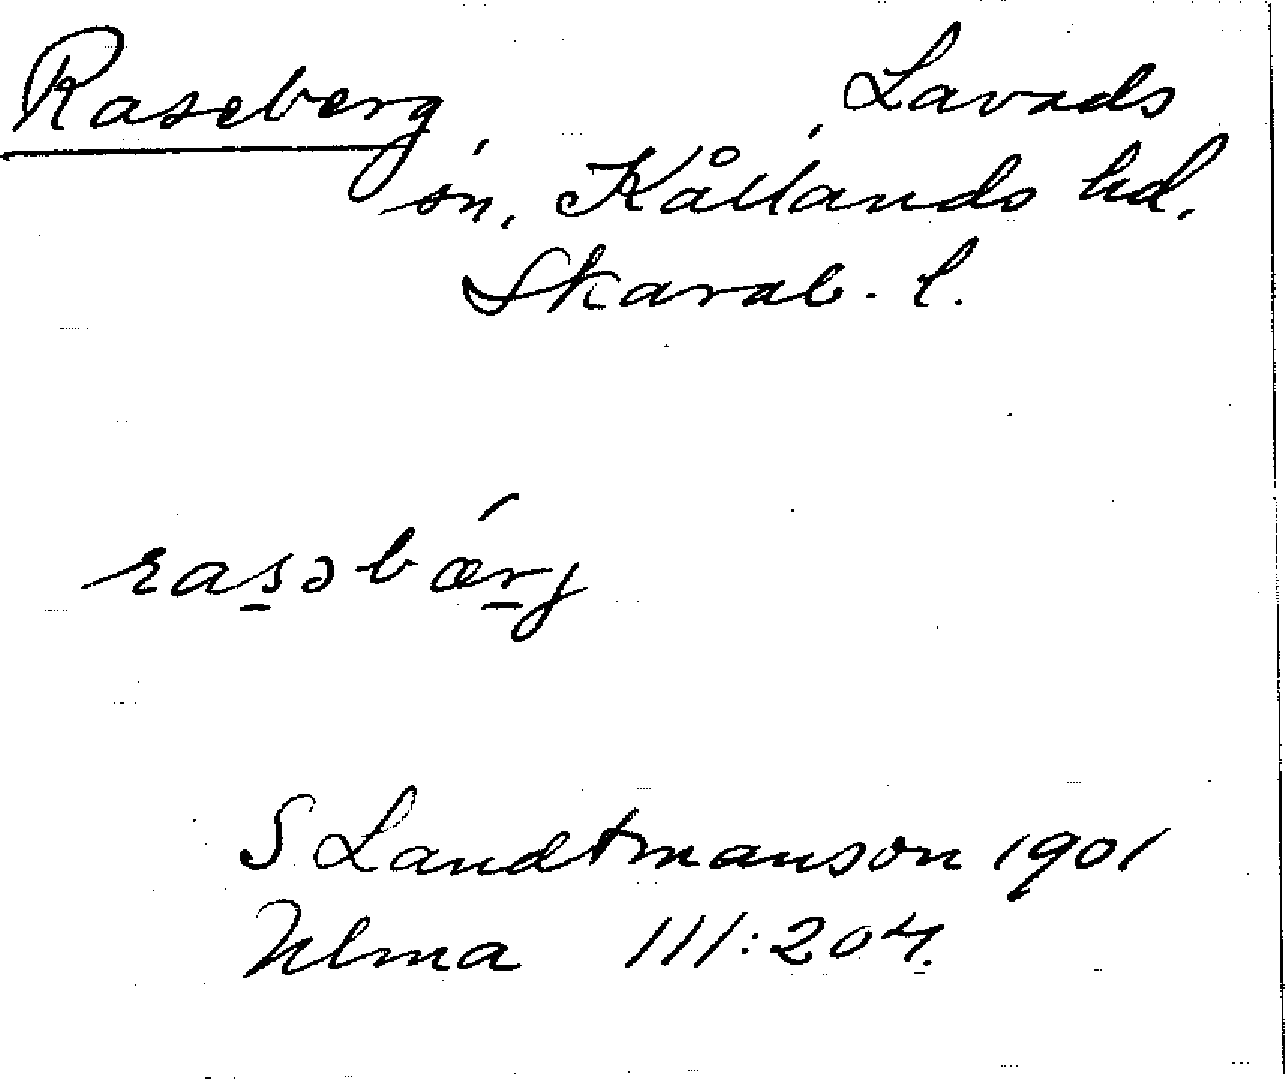 Raseberg, Lavads
sn, Kållands hd.
Skarab. l.
rasəbǽrj
S Landtmanson 1901
Ulma 111:204.